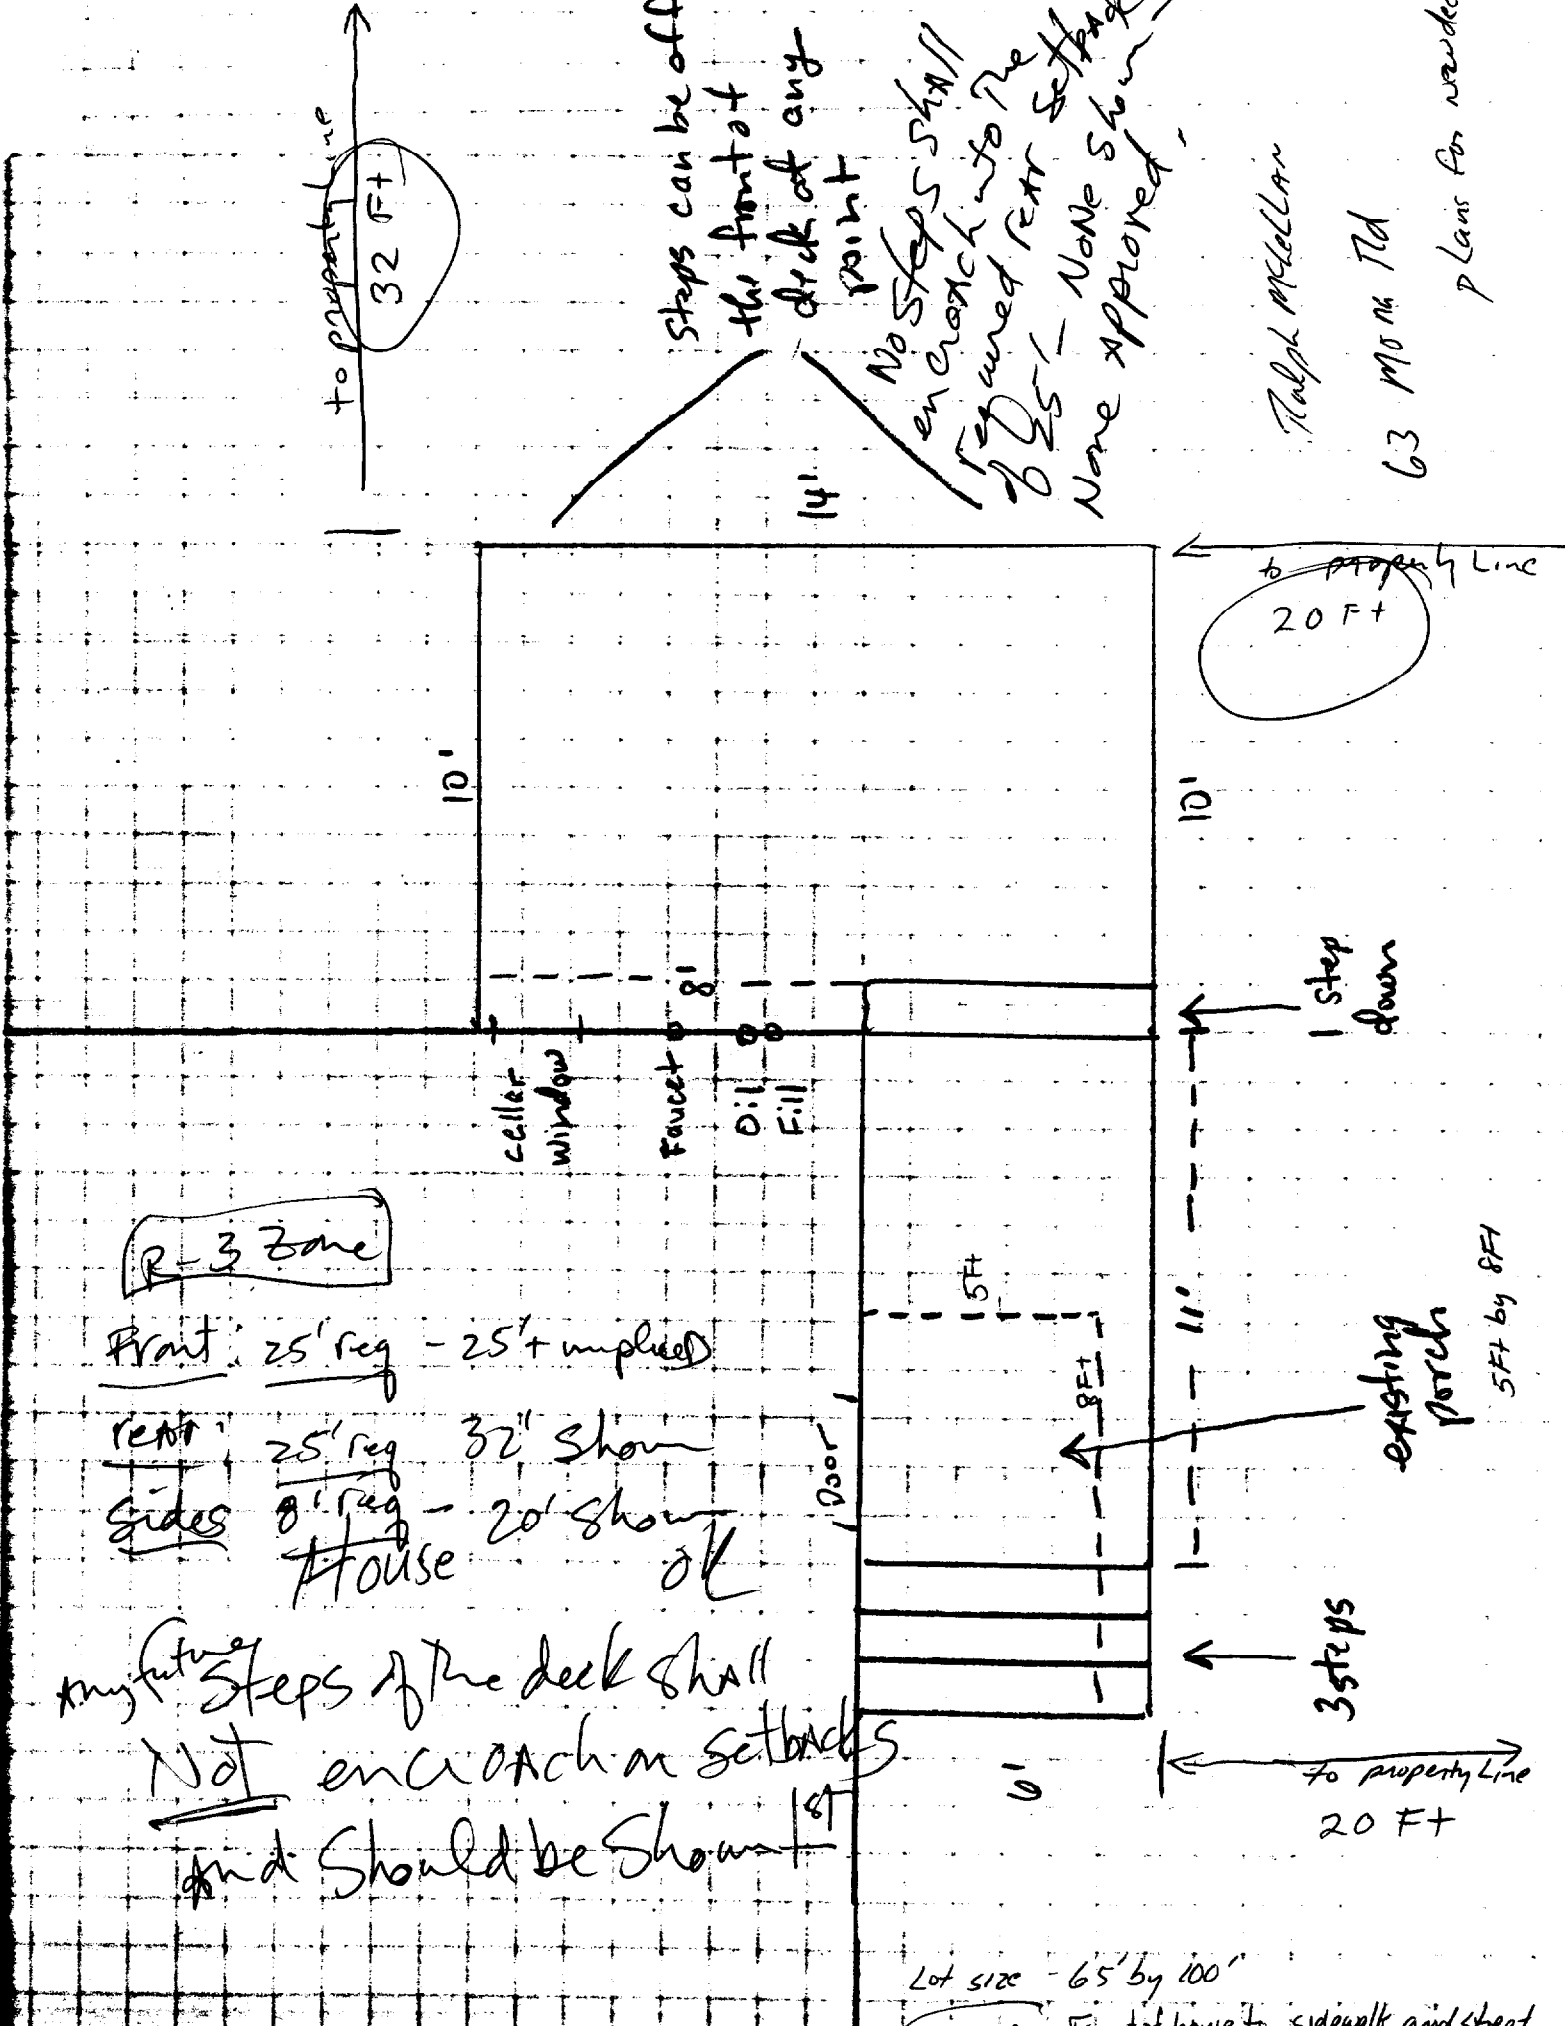 to property Line
32 Ft
Steps can be off
the front of
deck at any
point
No Steps shall
encroach into The
required rear setback
of 25' - None shown
None Approved.
Ralph McLellan
63 Mona Rd
plans for new deck
14'
to property Line
20 Ft
10'
10'
8'
1 step
down
cellar
window
Faucet
Oil
Fill
R-3 Zone
Front: 25' req - 25'+ implied
rear: 25' req 32' Shown
Sides 8' req - 20' Shown
House
OK
5Ft
8Ft
11'
Door
existing
porch
5Ft by 8Ft
Any future Steps of the deck shall
Not encroach on setbacks
And Should be Shown 1st
6'
3 steps
to property Line
20 Ft
Lot size - 65' by 100'
house to sidewalk and street